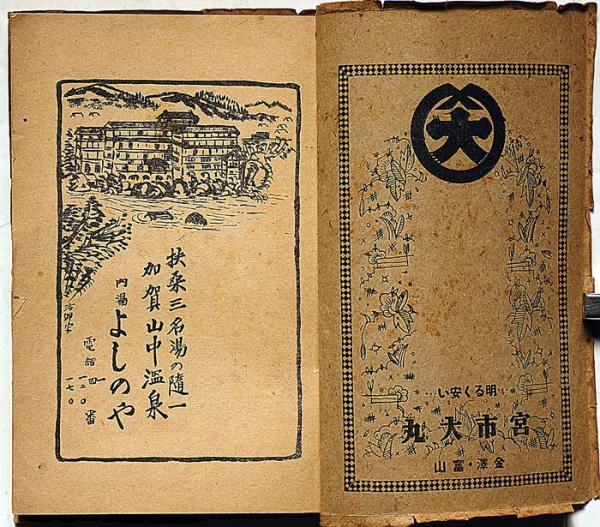 大
明るく安い
宮市大丸
金澤・富山
扶桑三名湯の隨一
加賀山中温泉
内湯 よしのや
電話 番
一七〇